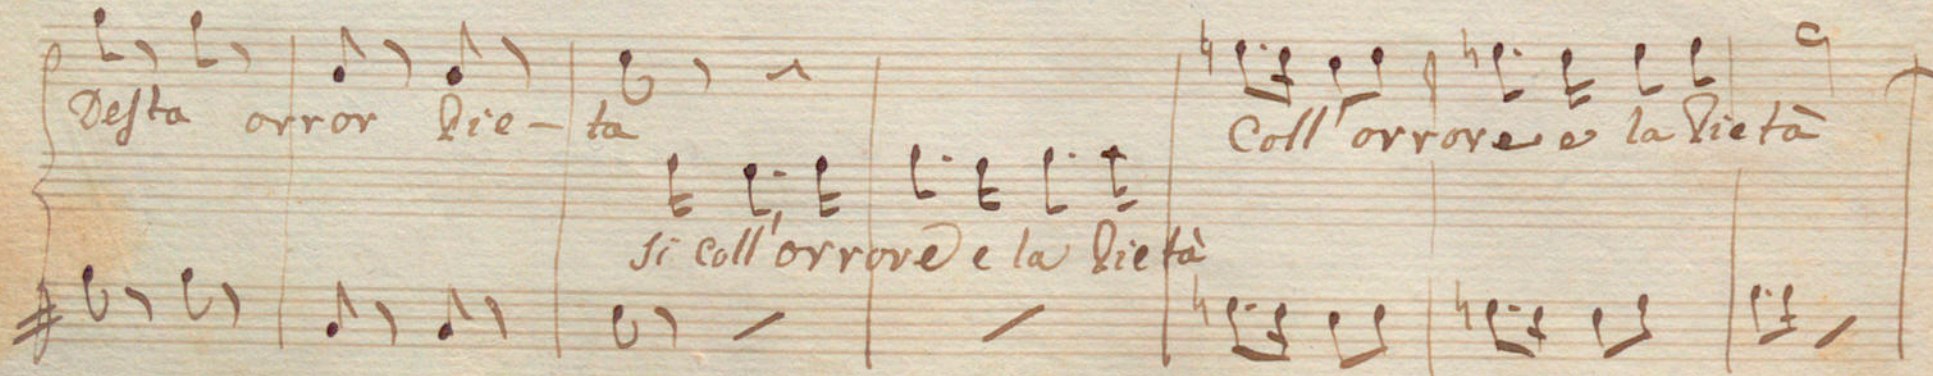 Desta orror Pie-ta
Coll'orrore e la Pietà
si coll'orrore e la Pietà